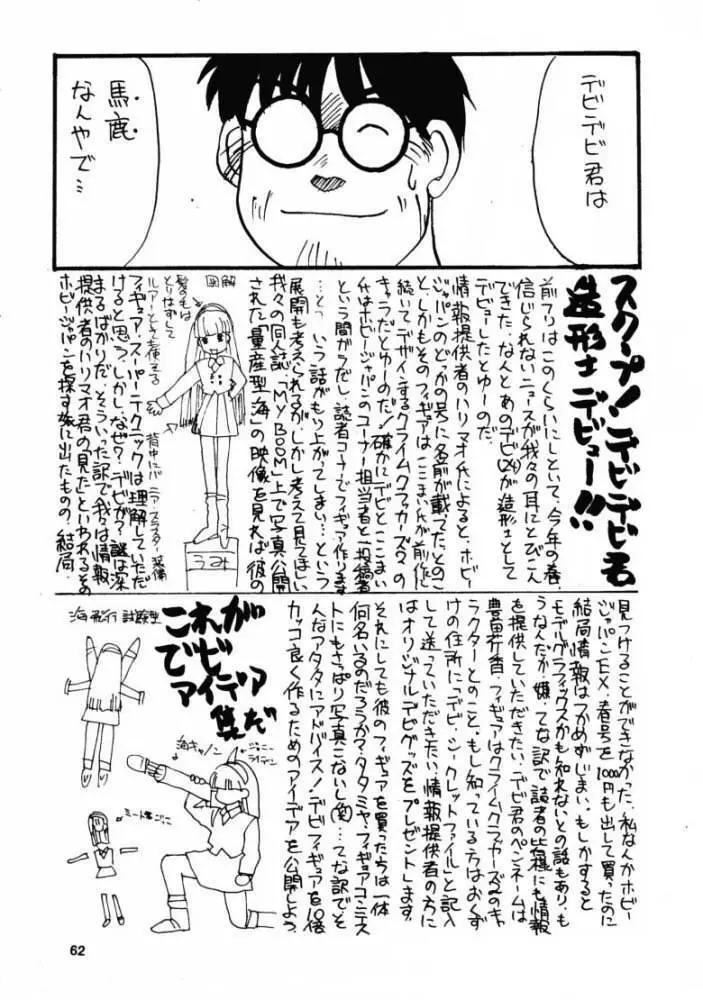 デビデビ君は
馬鹿
なんやで…
スクープ!デビデビ君
造形士デビュー!!
前フリはこのくらいにしといて、今年の春、
信じられないニュースが我々の耳にとびこん
できた。なんとあのデビ(24)が造形士として
デビューしたとゆーのだ。
情報提供者のハリマオ氏によると、ホビー
ジャパンのどっかの号に名前が載ってたとのこ
と。しかもそのフィギュアはここまひ氏が前作に
続いてデザインするクライムクラッカーズ2の
キャラだとゆーのだ!確かにデビとここまい
氏はホビージャパンのコーナー担当者と投稿者
という間ガラだし、読者コーナでフィギュア作ります
…とっいう話がもり上がってしまい…という
展開も考えられるが、しかし考えて見てほしい
我々の同人誌「MY BOOM」上で写真公開
された「量産型海」の映像を見れば彼の
フィギュア・スーパーテクニックは理解していただ
けると思う。しかし、なぜ?デビが?謎は深
まるばかりだ。そういった訳で我々は情報
提供者のハリマオ君の「見た」といわれるその
ホビージャパンを探す旅に出たものの、結局
図解
髪の毛は
とりはずして
ルアーとしても使える
背中にバーニア・スラスター装備
うみ
見つけることができなかった。私なんかホビー
ジャパンEX.春号を1000円も出して買ったのに
結局情報はつかめずじまい。もしかすると
モデルグラフィックスかも知れないとの話もあり、も
うなんだか嫌。てな訳で読者の皆様にも情報
を提供していただきたい。デビ君のペンネームは
豊田行香、フィギュアはクライムクラッカーズ2のキャ
ラクターとのこと。もし知っている方はおくず
けの住所に「デビ・シークレットファイル」と記入
して送っていただきたい。情報提供者の方に
はオリジナルデビグッズをプレゼントします。
それにしても彼のフィギュアを買った方は一体
何名いるのだろうか?タタミヤ・フィギュアコンテス
トにもさっぱり写真こないし(笑)…てな訳でそ
んなアナタにアドバイス!デビフィギュアを10倍
カッコ良く作るためのアイデアを公開しよう。
これが
デビ
アイデア
集だ
海飛行試験型
海キャノン
ジョニー
ライデン